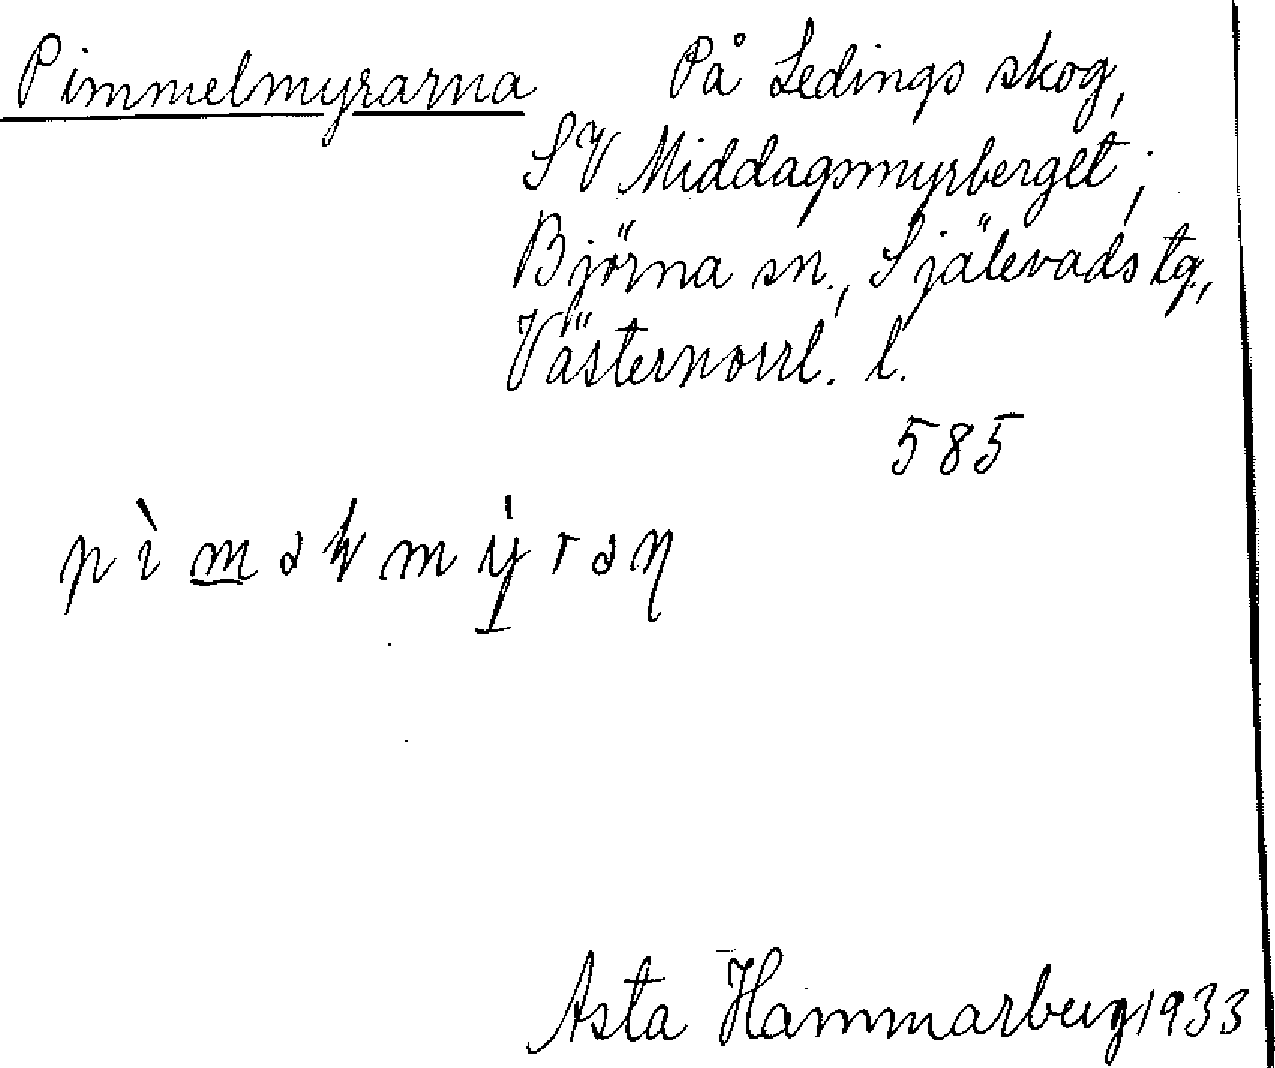 Pimmelmyrarna På Ledings skog,
SV Middagsmyrberget;
Björna sn., Själevads tg.,
Västernorrl. l.
585
Asta Hammarberg 1933